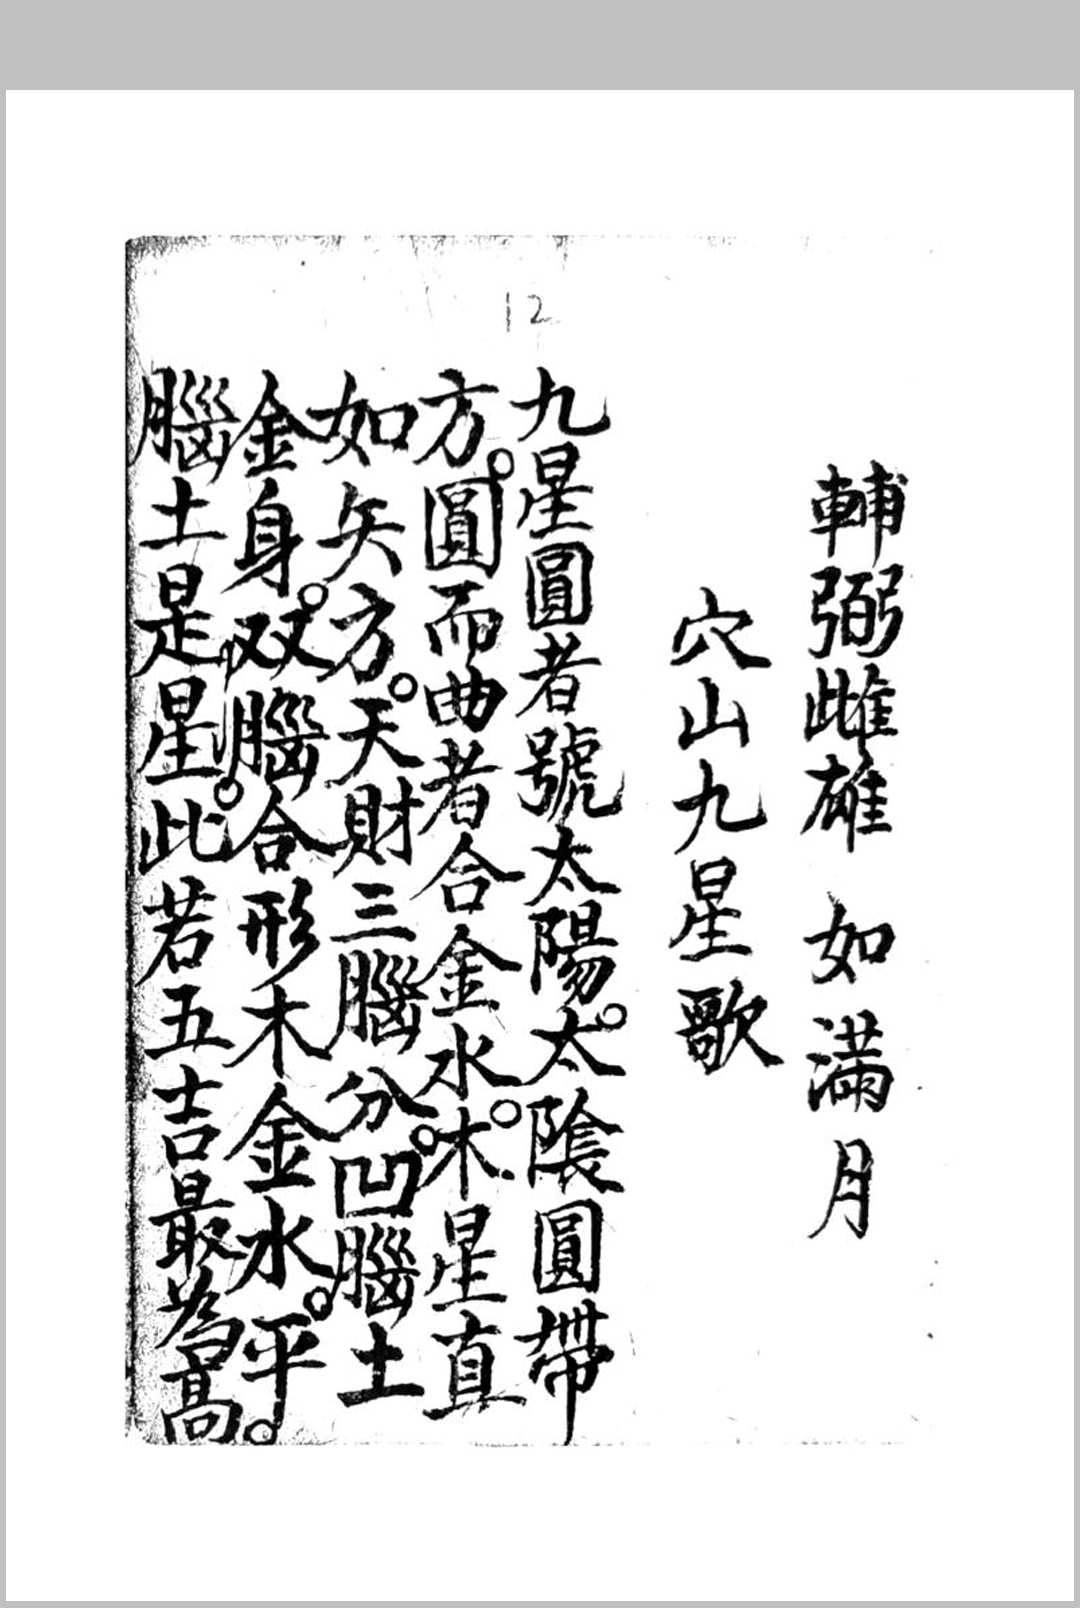 12
輔弼雌雄 如滿月
穴山九星歌
九星圓者號太陽。太陰圓帶
方。圓而曲者合金水。木星直
如矢方。天財三腦分。凹腦土
金身。双腦合形木金水。平
腦土是星。此若五吉最為高。